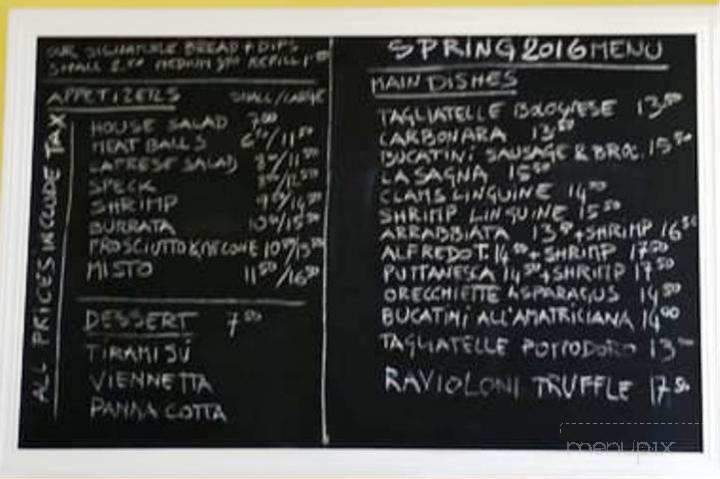 OUR SIGNATURE BREAD + DIPS
SMALL 2.50 MEDIUM REFILL
APPETIZERS SMALL/LARGE
HOUSE SALAD 7.00
MEAT BALLS 6⁵⁰/11⁵⁰
CAPRESE SALAD 8⁵⁰/11⁵⁰
SPECK 8⁵⁰/12⁵⁰
SHRIMP 9⁵⁰/14⁵⁰
BURRATA 10⁵⁰/15⁵⁰
PROSCIUTTO & 10⁵⁰/15⁵⁰
MISTO 11⁵⁰/16⁵⁰
DESSERT 7⁵⁰
TIRAMISÚ
VIENNETTA
PANNA COTTA
ALL PRICES INCLUDE TAX
SPRING 2016 MENU
MAIN DISHES
TAGLIATELLE BOLOGNESE 13⁵⁰
CARBONARA 13⁵⁰
BUCATINI SAUSAGE & BROC. 15⁵⁰
LASAGNA 15⁵⁰
CLAMS LINGUINE 14⁵⁰
SHRIMP LINGUINE 15⁵⁰
ARRABBIATA 13⁵⁰ + SHRIMP 16⁵⁰
ALFREDO T. 14⁵⁰ + SHRIMP 17⁵⁰
PUTTANESCA 14⁵⁰ + SHRIMP 17⁵⁰
ORECCHIETTE ASPARAGUS 14⁵⁰
BUCATINI ALL'AMATRICIANA 14⁰⁰
TAGLIATELLE POMODORO 13⁰⁰
RAVIOLONI TRUFFLE 17⁵⁰
menupix